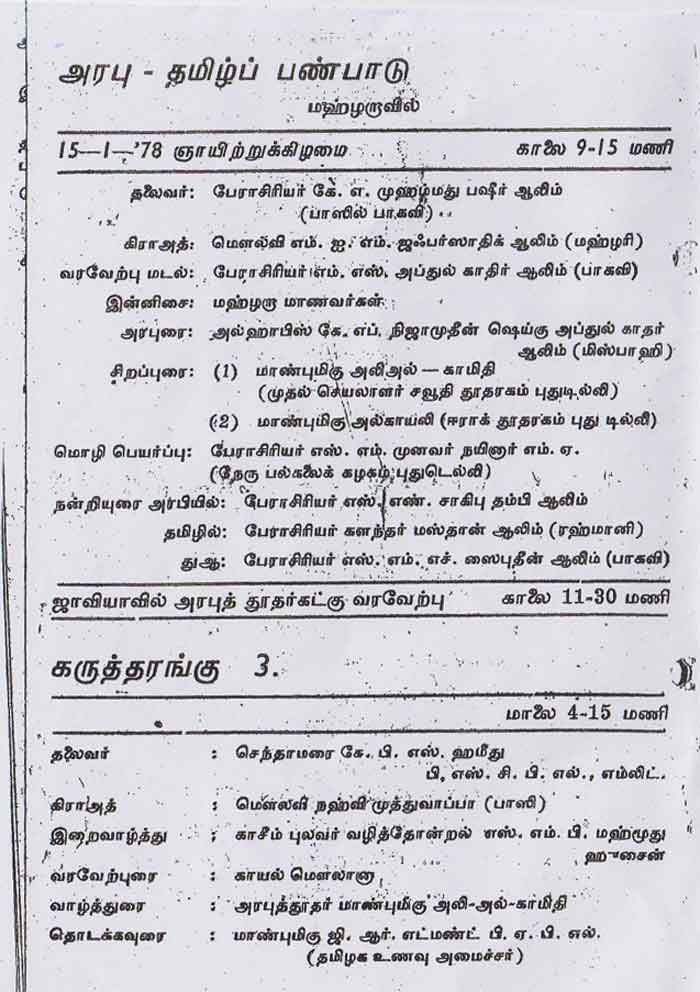 அரபு - தமிழ்ப் பண்பாடு
மஹ்ழறாவில்
15—1—'78 ஞாயிற்றுக்கிழமை காலை 9-15 மணி
தலைவர்: பேராசிரியர் கே. எ. முஹம்மது பஷீர் ஆலிம்
(பாஸில் பாகவி)
கிராஅத்: மௌலவி எம். ஐ. எம். ஜஃபர்ஸாதிக் ஆலிம் (மஹ்ழரி)
வரவேற்பு மடல்: பேராசிரியர் எம். எஸ். அப்துல் காதிர் ஆலிம் (பாகவி)
இன்னிசை: மஹ்ழறா மாணவர்கள்
அரபுரை: அல்ஹாபிஸ் கே. எப். நிஜாமுதீன் ஷெய்கு அப்துல் காதர்
ஆலிம் (மிஸ்பாஹி)
சிறப்புரை: (1) மாண்புமிகு அலிஅல் — காமிதி
(முதல் செயலாளர் சவூதி தூதரகம் புதுடில்லி)
(2) மாண்புமிகு அல்காயலி (ஈராக் தூதரகம் புது டில்லி)
மொழி பெயர்ப்பு: பேராசிரியர் எஸ். எம். முனவர் நயினார் எம். ஏ.
(நேரு பல்கலைக் கழகம் புதுடெல்லி)
நன்றியுரை அரபியில்: பேராசிரியர் எஸ். எண். சாகிபு தம்பி ஆலிம்
தமிழில்: பேராசிரியர் களந்தர் மஸ்தான் ஆலிம் (ரஹ்மானி)
துஆ: பேராசிரியர் எஸ். எம். எச். ஸைபுதீன் ஆலிம் (பாகவி)
ஜாவியாவில் அரபுத் தூதர்கட்கு வரவேற்பு காலை 11-30 மணி
கருத்தரங்கு 3.
மாலை 4-15 மணி
தலைவர் : செந்தாமரை கே. பி. எஸ். ஹமீது
பி, எஸ். சி. பி. எல்., எம்லிட்.
கிராஅத் : மௌலவி நஹ்வி முத்துவாப்பா (பாஸி)
இறைவாழ்த்து : காசீம் புலவர் வழித்தோன்றல் எஸ். எம். பி. மஹ்மூது
ஹுசைன்
வரவேற்புரை : காயல் மௌலானா
வாழ்த்துரை : அரபுத்தூதர் மாண்புமிகு அலி-அல்-காமிதி
தொடக்கவுரை : மாண்புமிகு ஜி. ஆர். எட்மண்ட் பி. ஏ. பி. எல்.
(தமிழக உணவு அமைச்சர்)